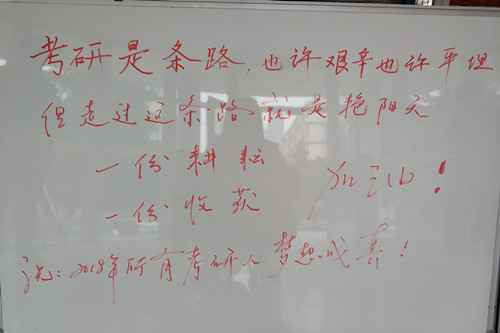 考研是条路，也许艰辛也许平坦
但走过这条路就是艳阳天
一份耕耘
加油！
一份收获
祝：2018年所有考研人梦想成真！